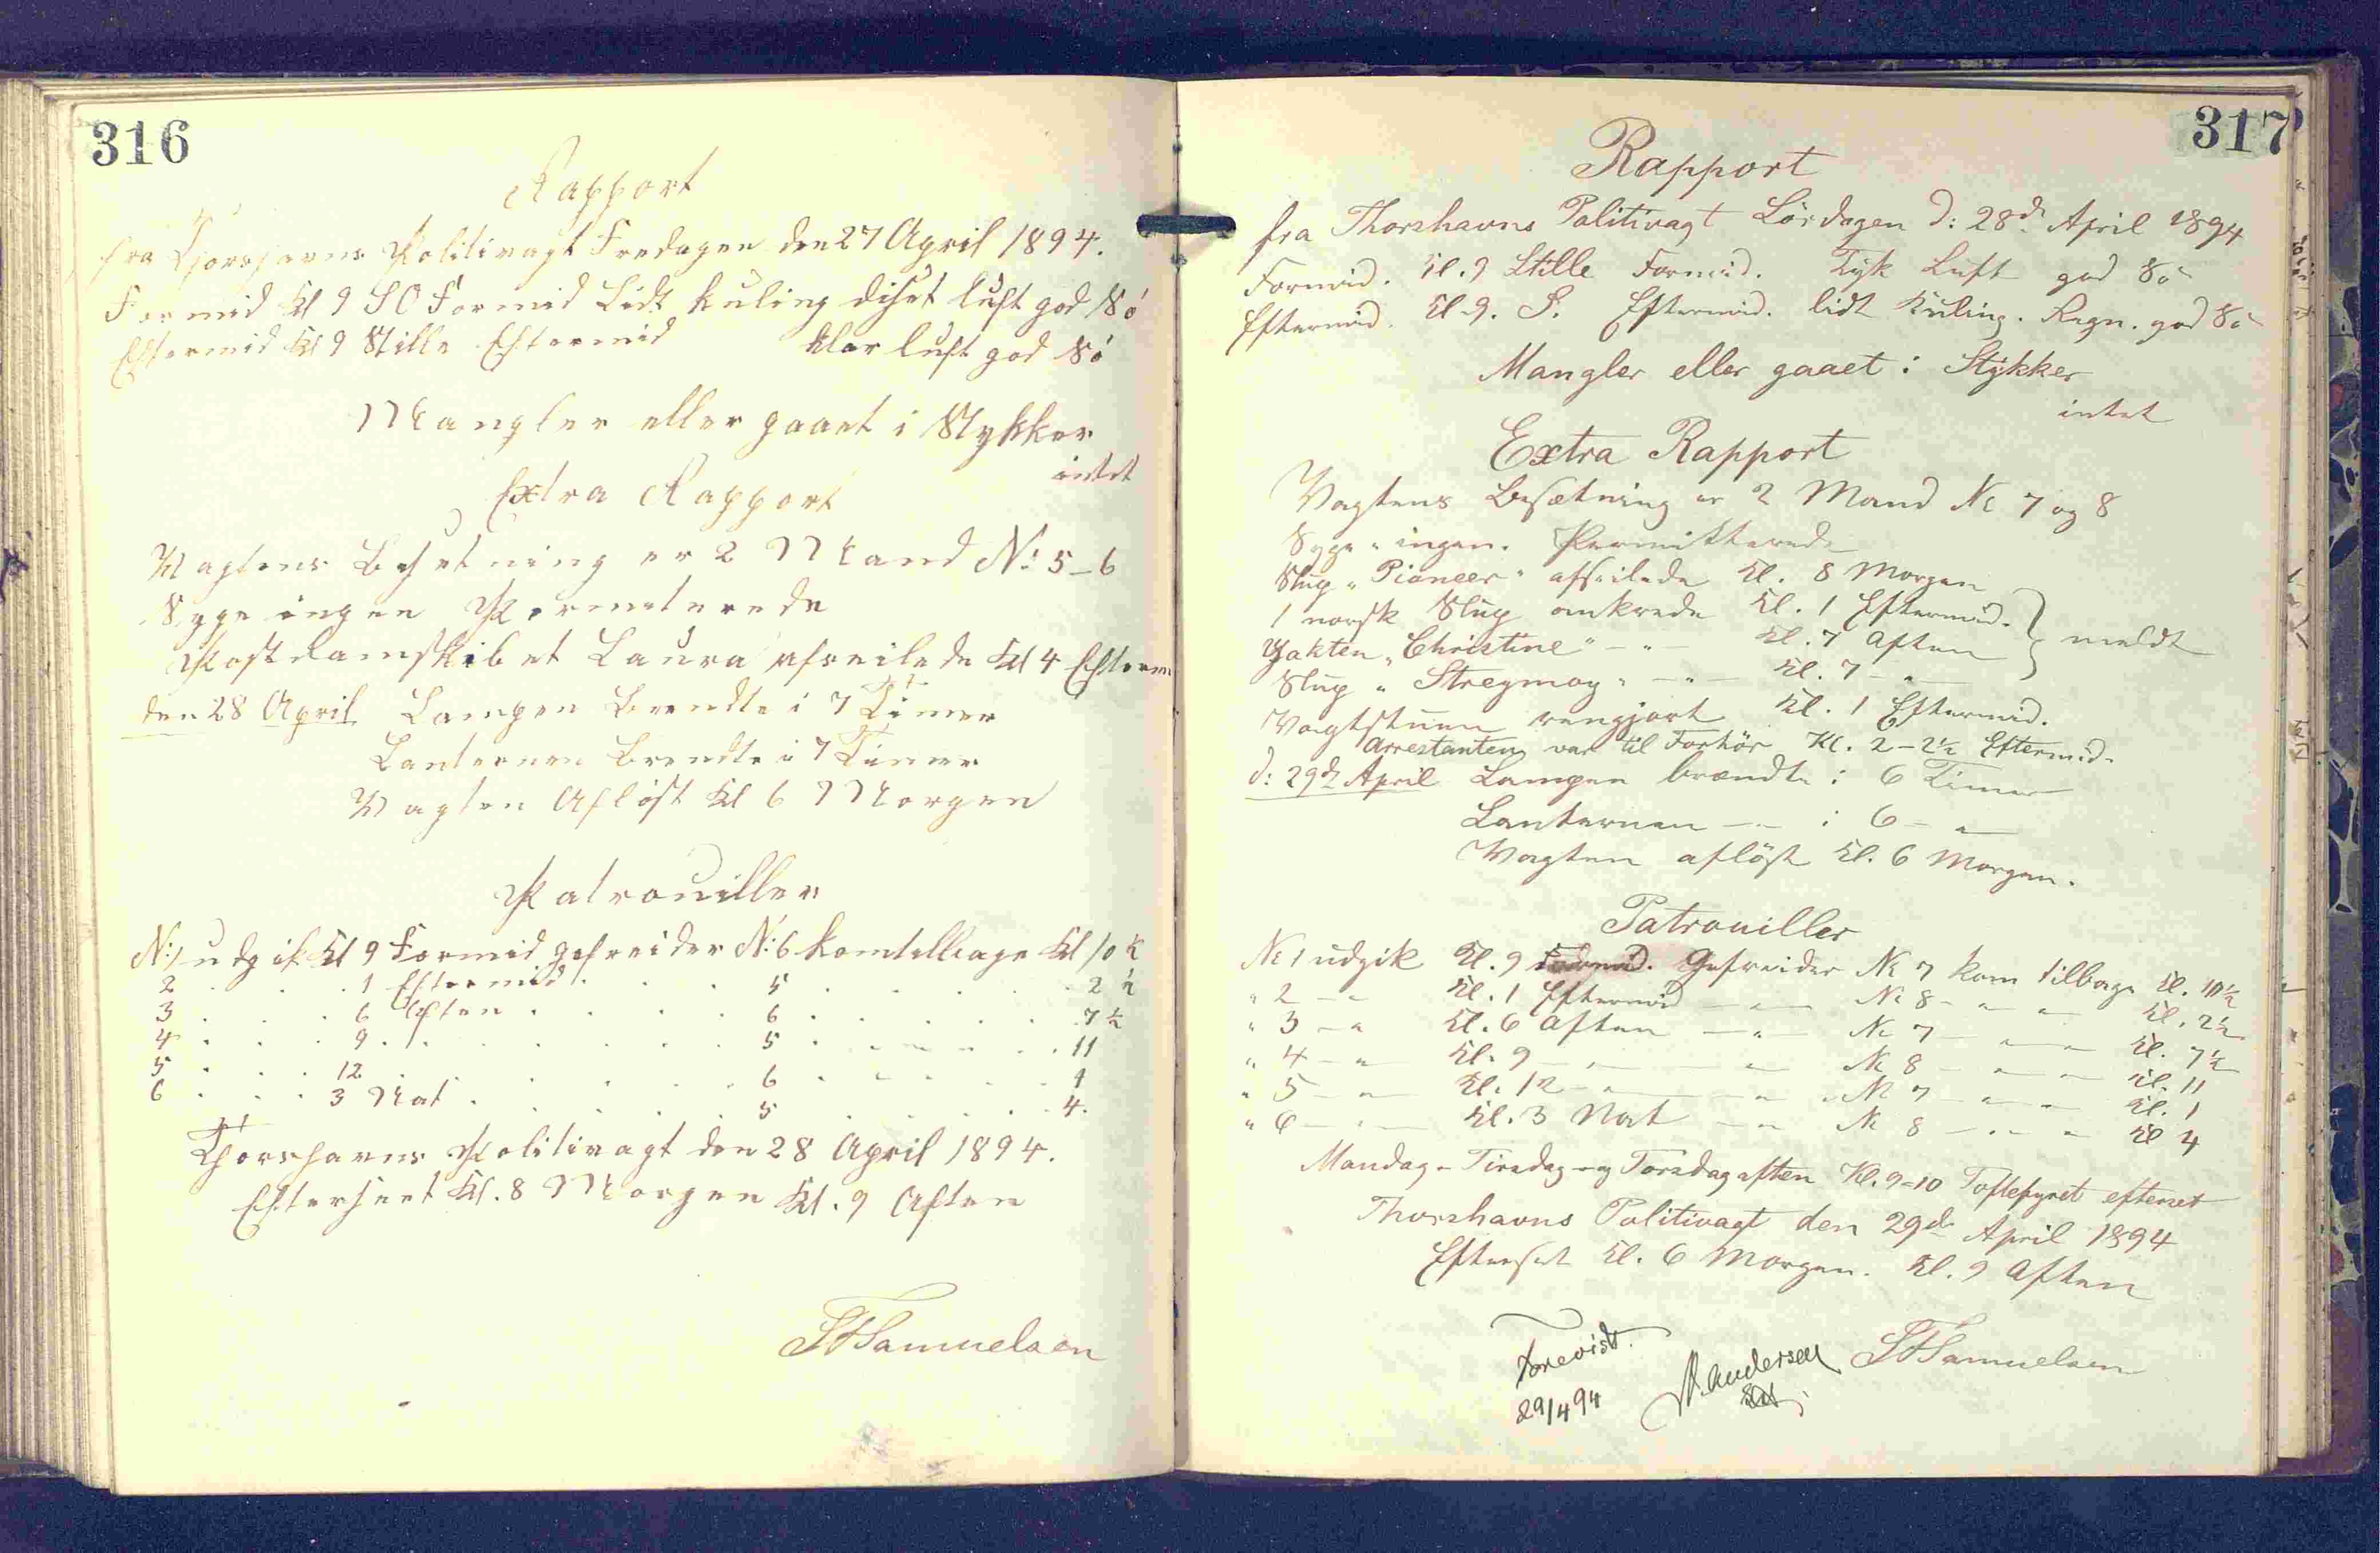 316
Rapport
fra Thorshavns Politivagt Fredagen den 27 April 1894.
Formid Kl 9 SO Formid Lidt kuling diset luft god Sö
Eftermid Kl 9 Stille Eftermid klar luft god Sö
Mangler eller gaaet i Stykker
intet
Extra Rapport
Vagtens Besetning er 2 Mand N: 5-6
Syge ingen Permeterede
Postdamskibet Laura afseilede Kl 4 Efterm
den 28 April Lampen Brendte i 7 Timer
Lanternen Brendte i 7 Timer
Vagten Aflöst Kl 6 Morgen
Patrouiller
N: 1 udgik Kl 9 Formid gefreider N: 6 kom tilbage Kl 10 ½
2 . . . 1 Eftermid . . . 5 . . . . 2 ½
3 . . . 6 Aften . . . 6 . . . . 7 ½
4 . . . 9 . . . . 5 . . . . 11
5 . . . 12 . . . . 6 . . . . 1
6 . . . 3 Nat . . . . 5 . . . . 4.
Thorshavns Politivagt den 28 April 1894.
Efterseet Kl. 8 Morgen Kl. 9 Aften
Samuelsen
317
Rapport
fra Thorshavns Politivagt Lördagen d: 28de April 1894
Formid. Kl. 9 Stille Formid. Tyk Luft god Sö
Eftermid. Kl 9. S. Eftermid. lidt Kuling. Regn. god Sö
Mangler eller gaaet i Stykker
intet
Extra Rapport
Vagtens Besætning er 2 Mand No 7 og 8
Syge " ingen. Permitterede
Slup "Pioneer" afseilede Kl. 8 Morgen
1 norsk Slup ankrede Kl. 1 Eftermid.
Yakten "Christine" — " — Kl. 7 Aften } meldt
Slup "Streymoy" — " — Kl. 7 — " —
Vagtstuen rengjort Kl. 1 Eftermid.
Arrestanten var til Forhör Kl. 2 - 2½ Eftermid.
d: 29de April Lampen brændte i 6 Timer
Lanternen — " — i 6 — " —
Vagten aflöst Kl. 6 Morgen.
Patrouiller
No 1 udgik Kl. 9 Formid. Gefreider No 7 kom tilbage Kl. 10½
" 2 — " Kl. 1 Eftermid — " — No 8 — " — " — Kl. 2½
" 3 — " Kl. 6 Aften — " — No 7 — " — " — Kl. 7½
" 4 — " — Kl. 9 — " — " — No 8 — " — " — Kl. 11
" 5 — " — Kl. 12 — " — " — No 7 — " — " — Kl. 1
" 6 — " — Kl. 3 Nat — " — No 8 — " — " — Kl 4
Mandag - Tirsdag - og Torsdag aften Kl. 9-10 Toftefyret efterset
Thorshavns Politivagt den 29de April 1894
Efterset Kl. 6 Morgen. Kl. 9 Aften
Forevist.
29/4 94 Andersen Samuelsen